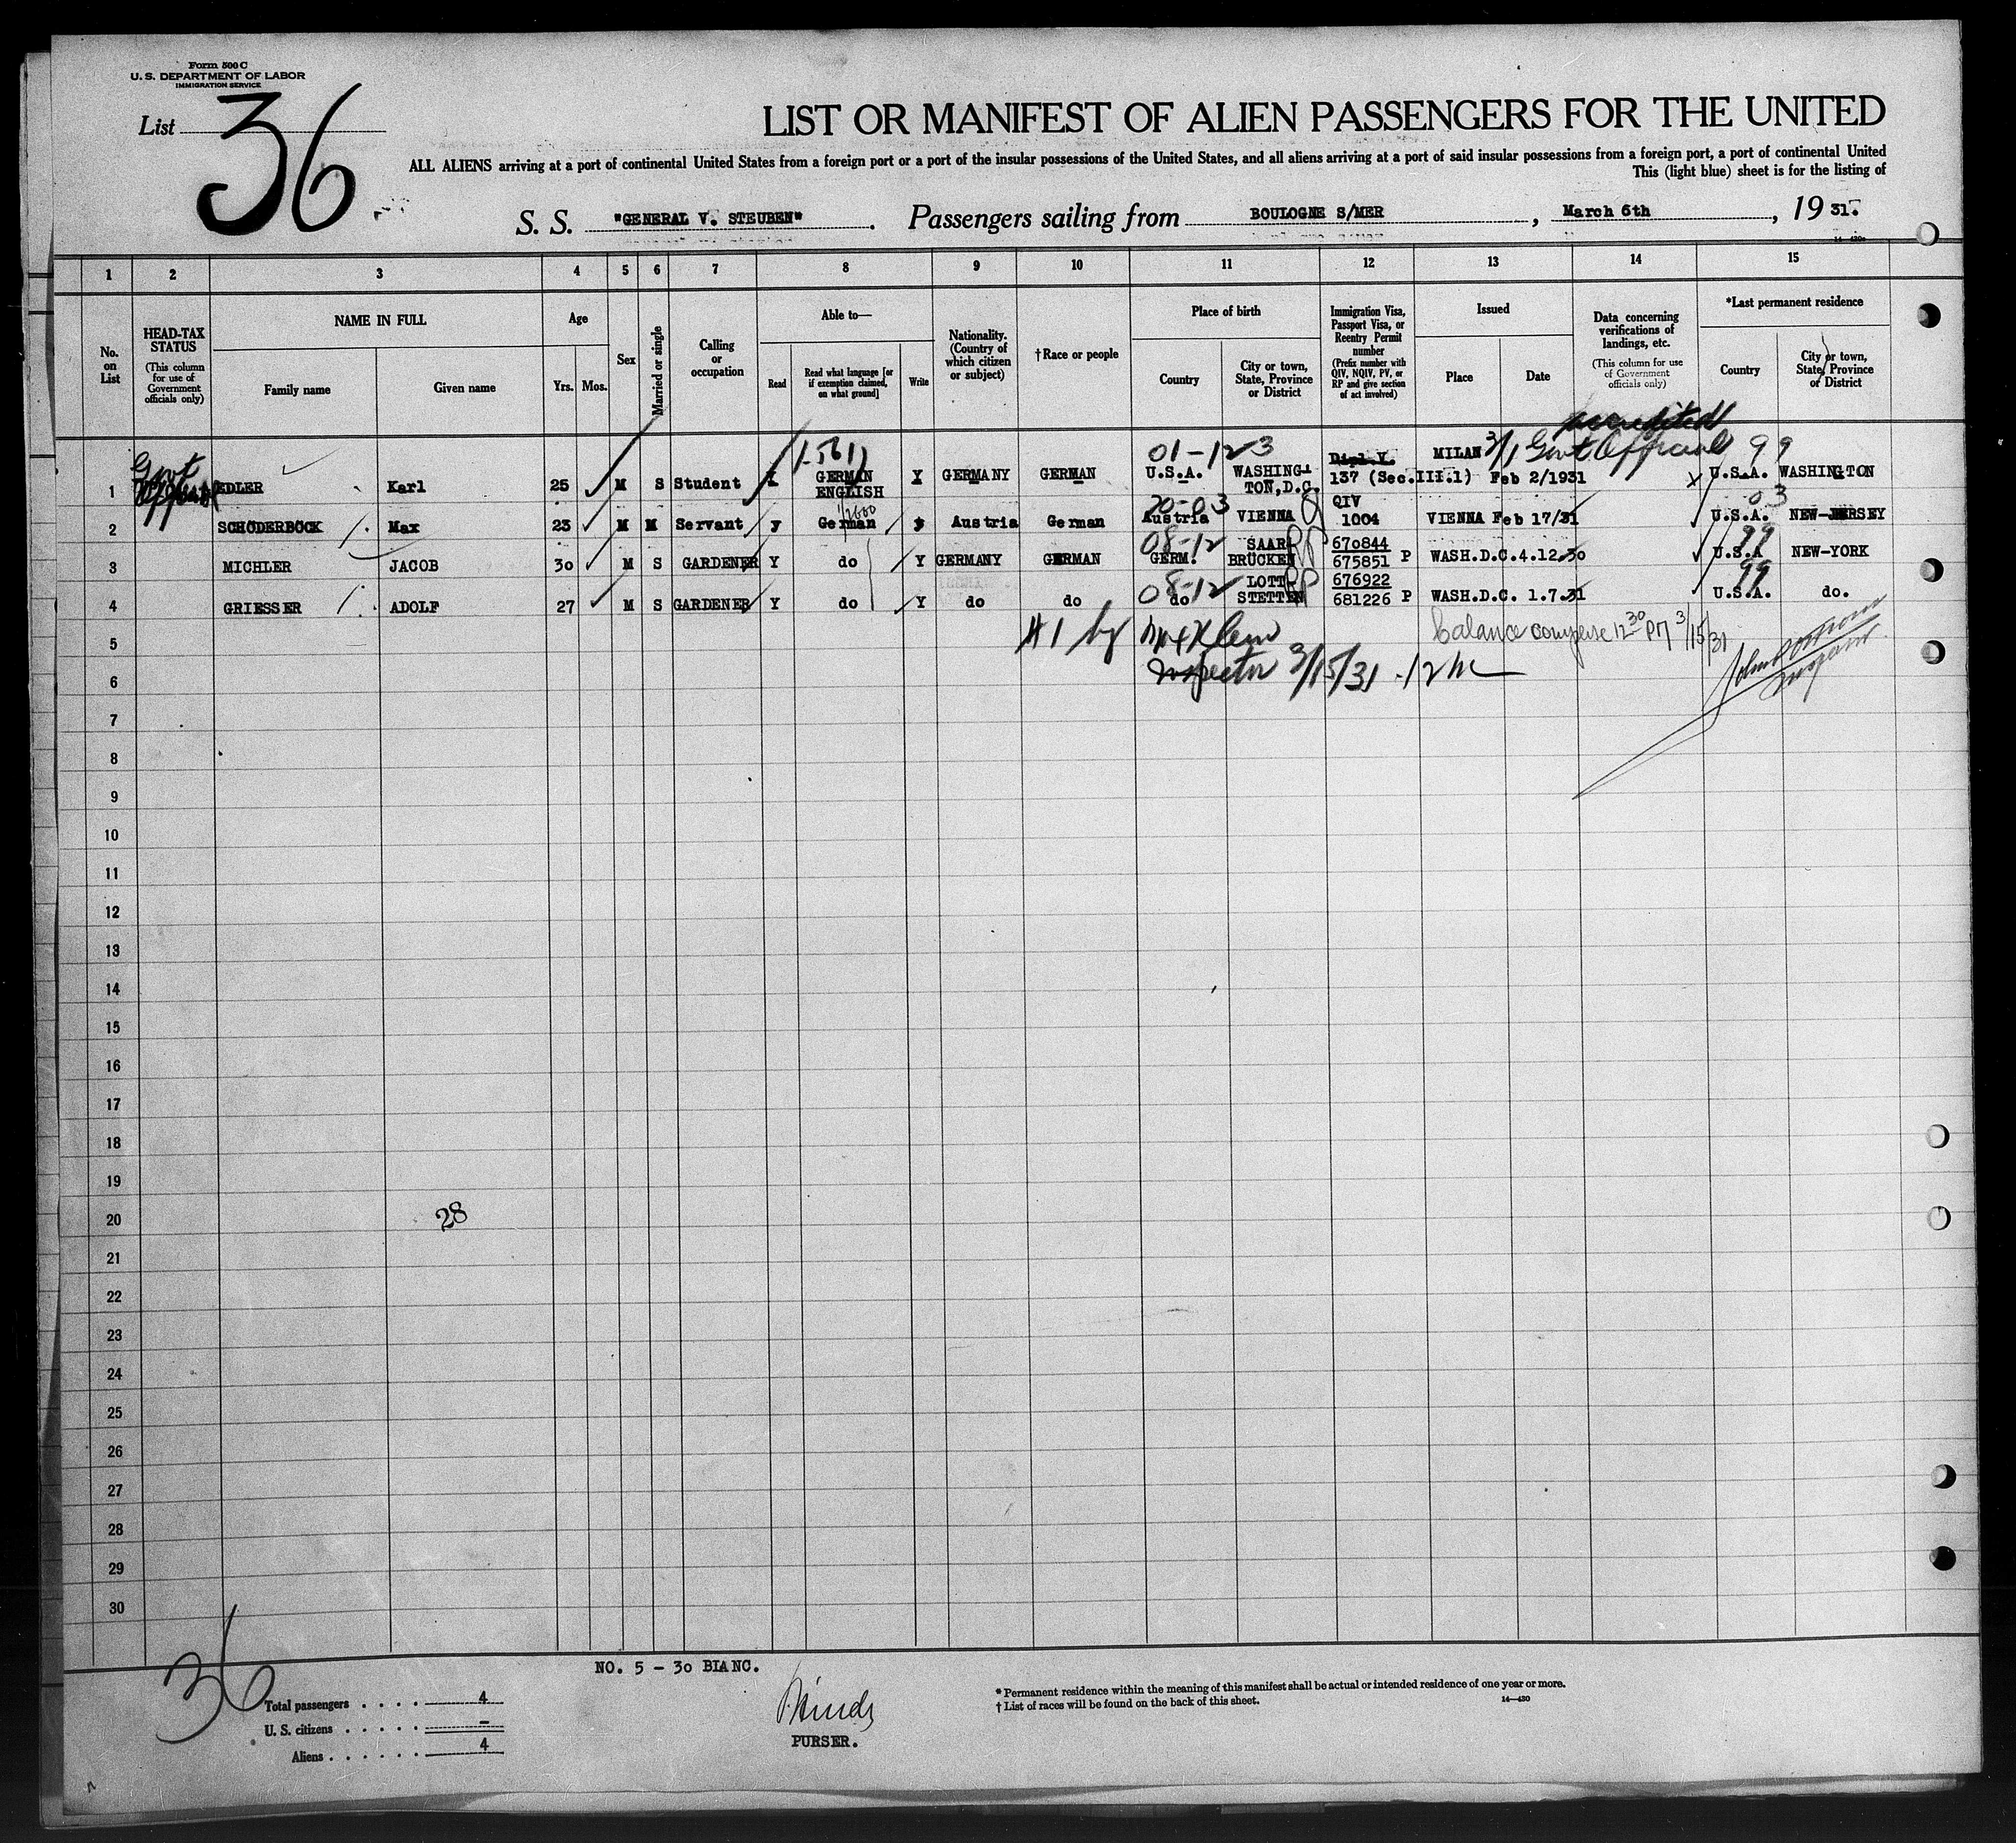 Form 500 C
U. S. DEPARTMENT OF LABOR
IMMIGRATION SERVICE
List 36
LIST OR MANIFEST OF ALIEN PASSENGERS FOR THE UNITED
ALL ALIENS arriving at a port of continental United States from a foreign port or a port of the insular possessions of the United States, and all aliens arriving at a port of said insular possessions from a foreign port, a port of continental United
This (light blue) sheet is for the listing of
S. S. "GENERAL V. STEUBEN". Passengers sailing from BOULOGNE S/MER, March 6th, 19 31.
14—430
1 2 3 4 5 6 7 8 9 10 11 12 13 14 15
No. on List
HEAD-TAX STATUS
(This column for use of Government officials only)
NAME IN FULL
Family name
Given name
Age
Yrs. Mos.
Sex
Married or single
Calling or occupation
Able to—
Read
Read what language [or if exemption claimed, on what ground]
Write
Nationality. (Country of which citizen or subject)
†Race or people
Place of birth
Country
City or town, State, Province or District
Immigration Visa, Passport Visa, or Reentry Permit number
(Prefix number with QIV, NQIV, PV, or RP and give section of act involved)
Issued
Place
Date
Data concerning verifications of landings, etc.
(This column for use of Government officials only)
*Last permanent residence
Country
City or town, State, Province or District
accredited
Govt 1-561 01-123 Dipl.V. MILAN 3/1 Govt Official 99
1 EDLER Karl 25 M S Student GERMAN ENGLISH Y GERMANY GERMAN U.S.A. WASHINGTON, D.C. 137 (Sec.III.1) Feb 2/1931 U.S.A. WASHINGTON
20-03 Q QIV 03
2 SCHÖDERBÖCK Max 23 M M Servant y German y Austria German Austria VIENNA 1004 VIENNA Feb 17/31 U.S.A. NEW-JERSEY
08-12 RP 99
3 MICHLER JACOB 30 M S GARDENER Y do Y GERMANY GERMAN GERM. SAARBRÜCKEN 670844 675851 P WASH.D.C. 4.12.30 U.S.A NEW-YORK
08-12 RP 99
4 GRIESSER ADOLF 27 M S GARDENER Y do Y do do do LOTTSTETTEN 676922 681226 P WASH.D.C. 1.7.31 U.S.A. do.
5 #1 by balance 12 30 PM 3/15/31
6 Inspector 3/15/31
7
8
9
10
11
12
13
14
15
16
17
18
19
20 28
21
22
23
24
25
26
27
28
29
30
NO. 5 - 30 BIANC.
36
Total passengers . . . . 4
U. S. citizens . . . . . –
Aliens . . . . . . 4
PURSER.
* Permanent residence within the meaning of this manifest shall be actual or intended residence of one year or more.
† List of races will be found on the back of this sheet.
14—430